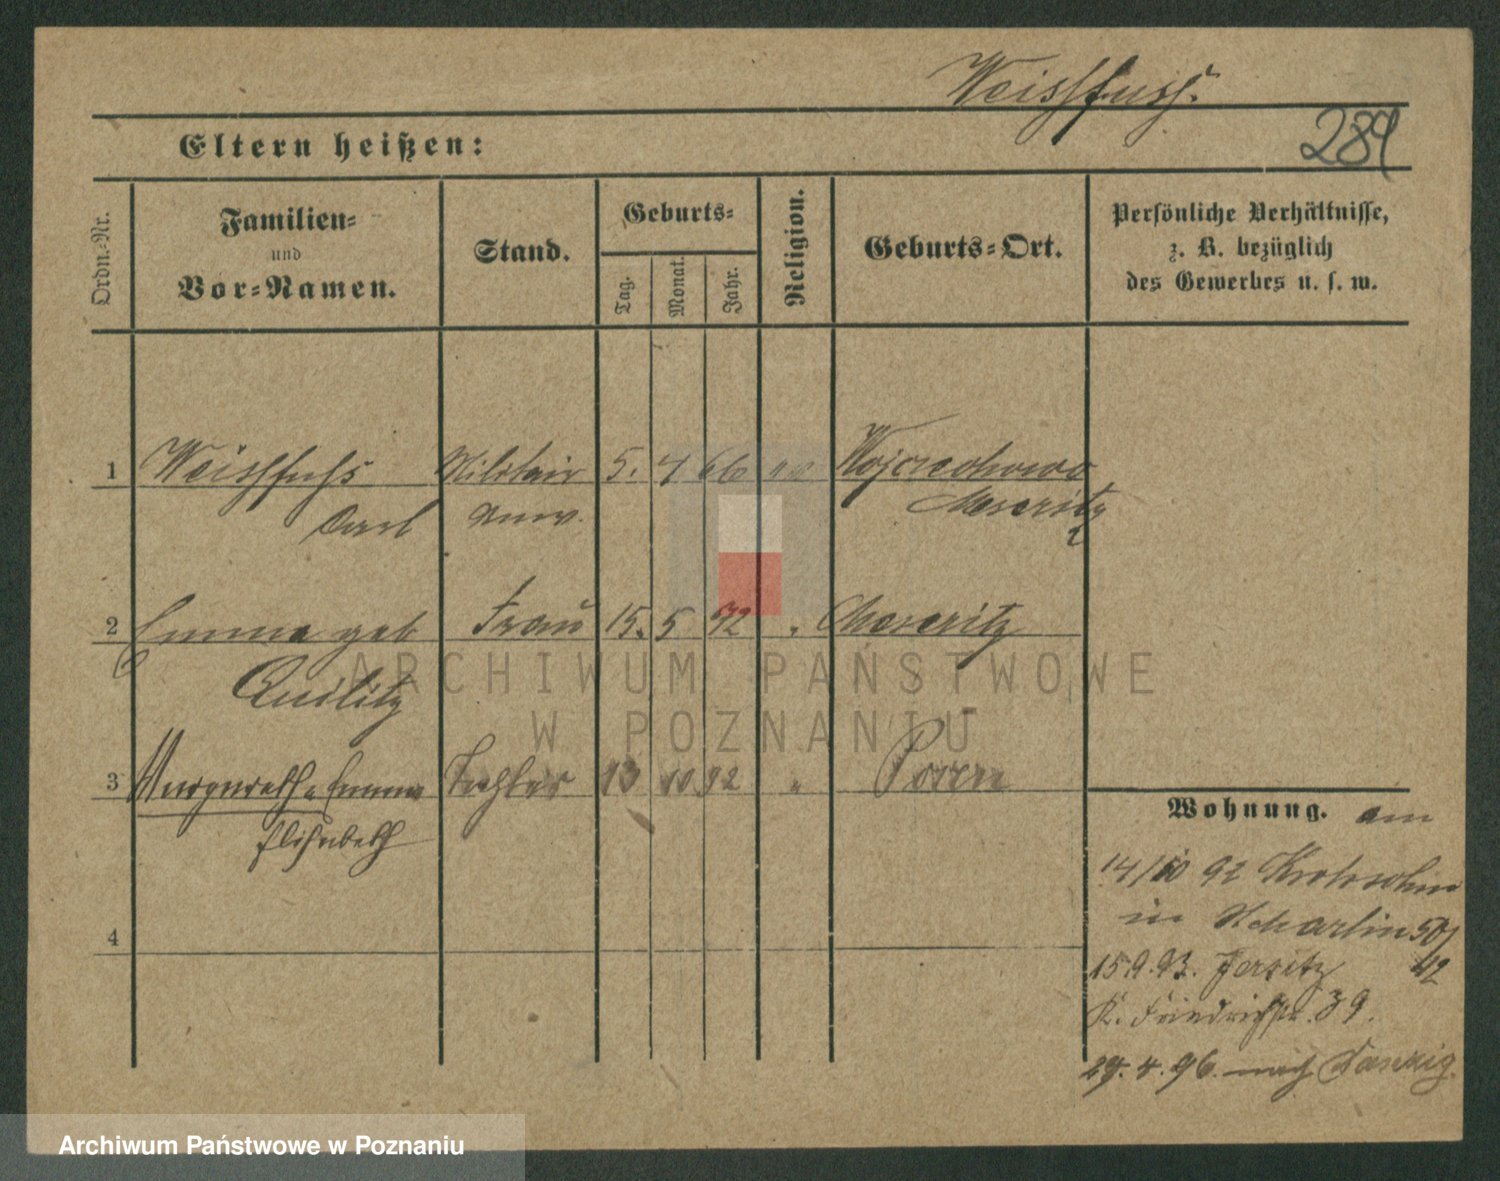 Weissfuss.
Eltern heißen:
289
Ordn.-Nr.
Familien-
und
Vor-Namen.
Stand.
Geburts-
Tag.
Monat.
Jahr.
Religion.
Geburts-Ort.
Persönliche Verhältnisse,
z. B. bezüglich
des Gewerbes u. s. w.
1 Weissfuss Militair 5. 4 66
Carl Anw. Meseritz
2 Emma geb Frau 15. 5 72 " Meseritz
Quilitz
3 Margarethe Emma Tochter 13 10 92 " Posen
Elisabeth
4
Wohnung. am
14/10 92
in 50/
15.9.93. Jersitz 42
K. Friedrichstr. 39.
29.4.96. nach Danzig.
ARCHIWUM PAŃSTWOWE
W POZNANIU
Archiwum Państwowe w Poznaniu